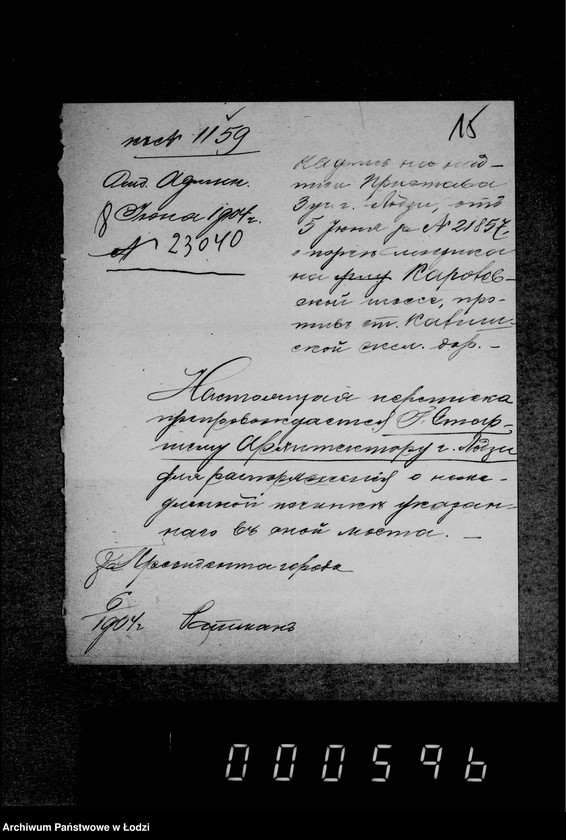 15
1159
Отд. Админ.
8 Июня 1904 г.
№ 23040
Надпись на над-
писи Пристава
3 уч. г. Лодзи, отъ
5 Июня за № 21857,
о порчѣ мостика
на углу Каролев-
ской шоссе, про-
тивъ ст. Калиш-
ской жел. дор. –
Настоящая переписка
препровождается Г. Стар-
шему Архитектору г. Лодзи
для распоряженія о неме-
дленной починкѣ указан-
наго въ оной моста. –
За Президента города
1904 г.
000596
Archiwum Państwowe w Łodzi